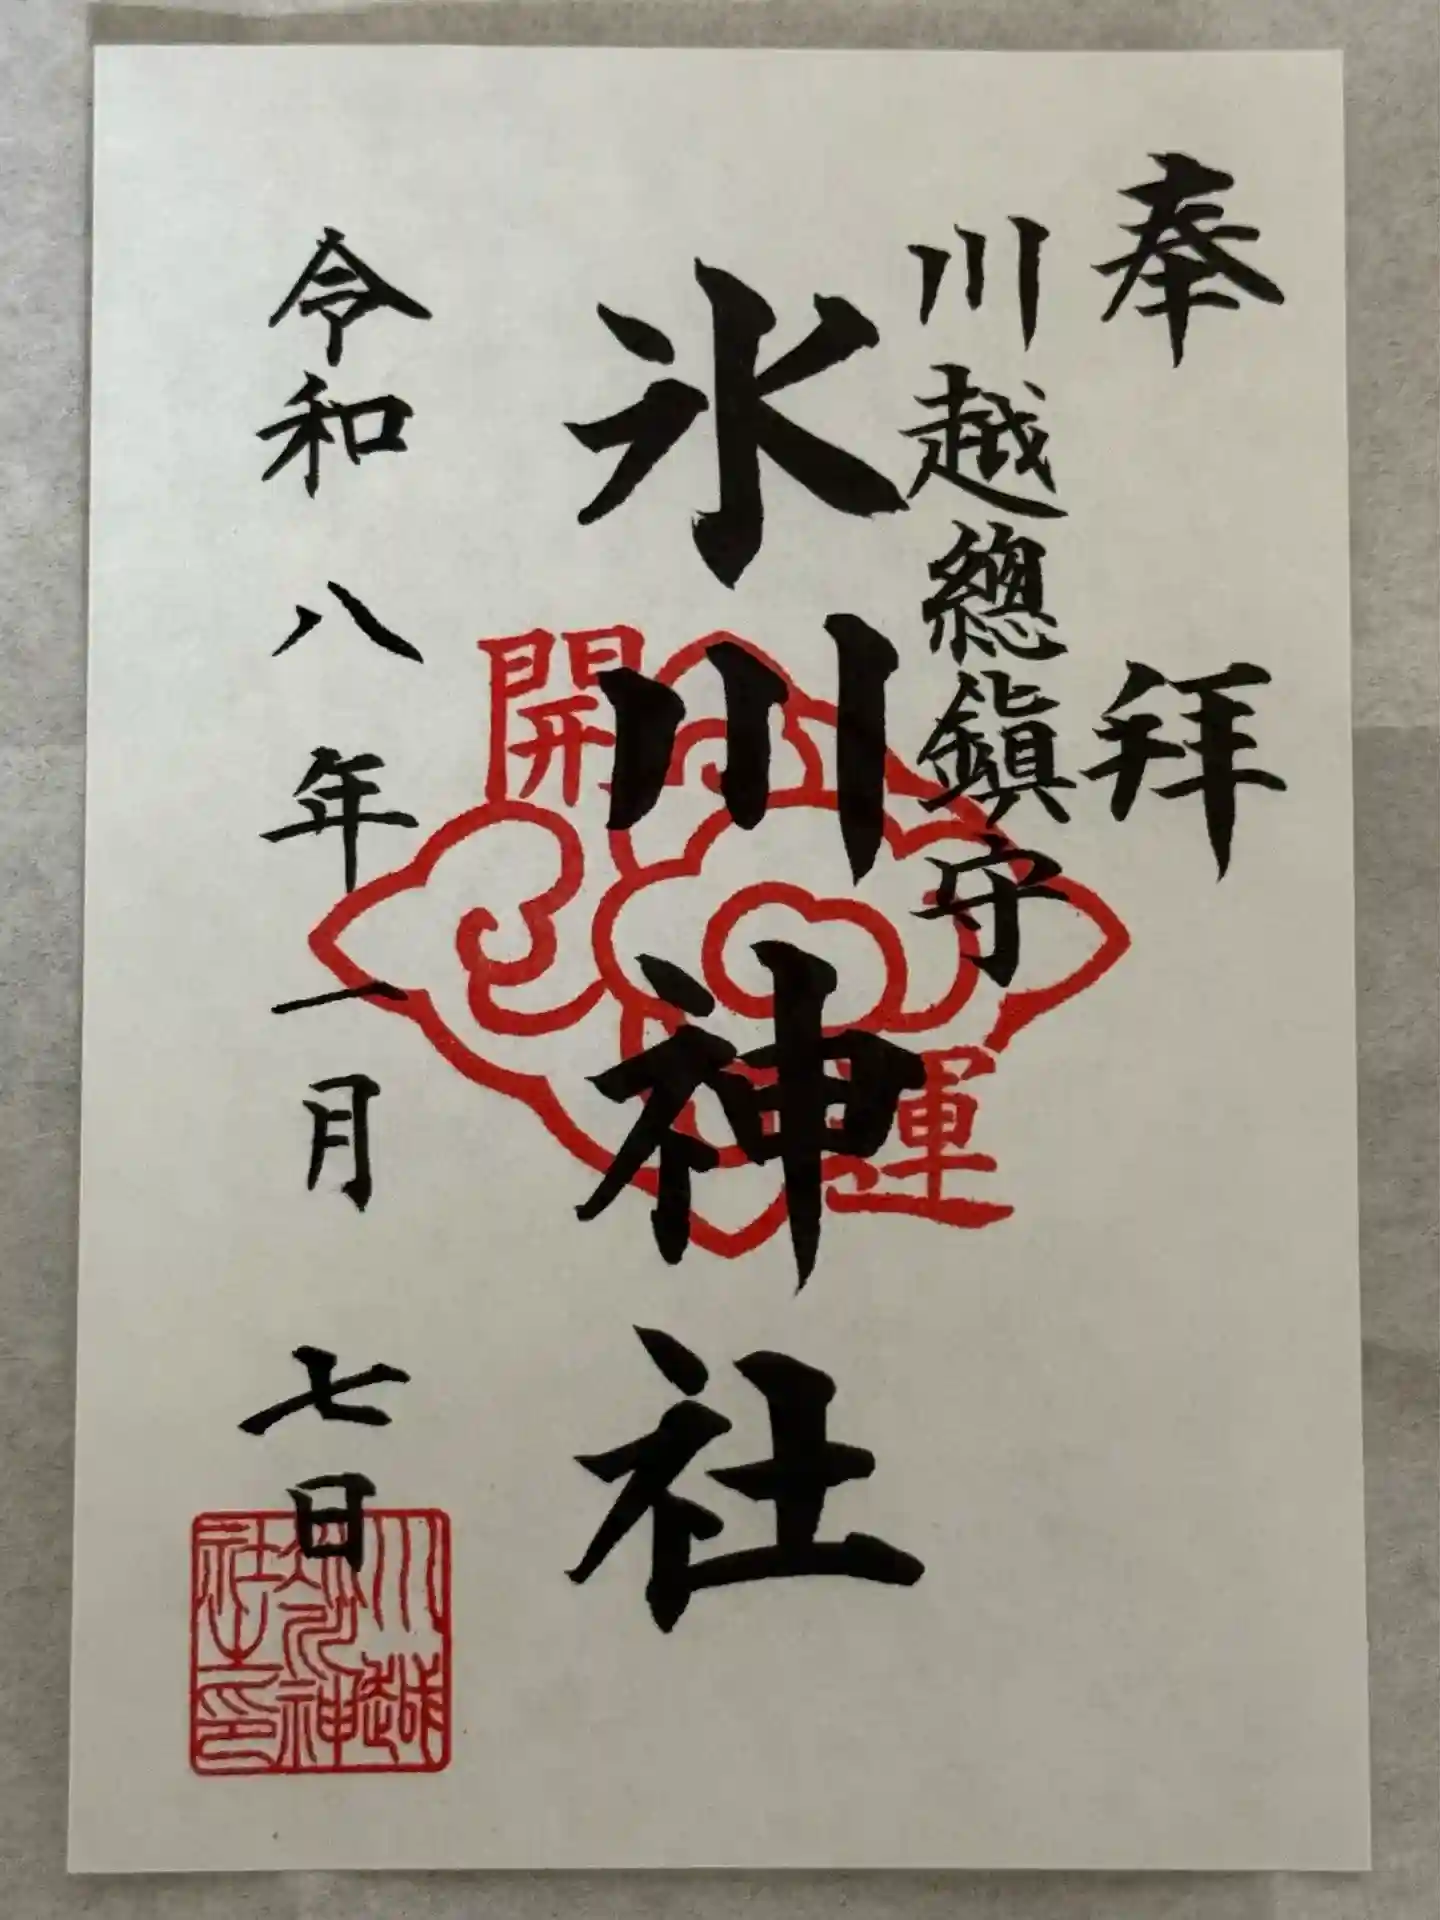 奉拝
川越總鎮守
氷川神社
開運
令和八年一月七日
川越氷川神社之印